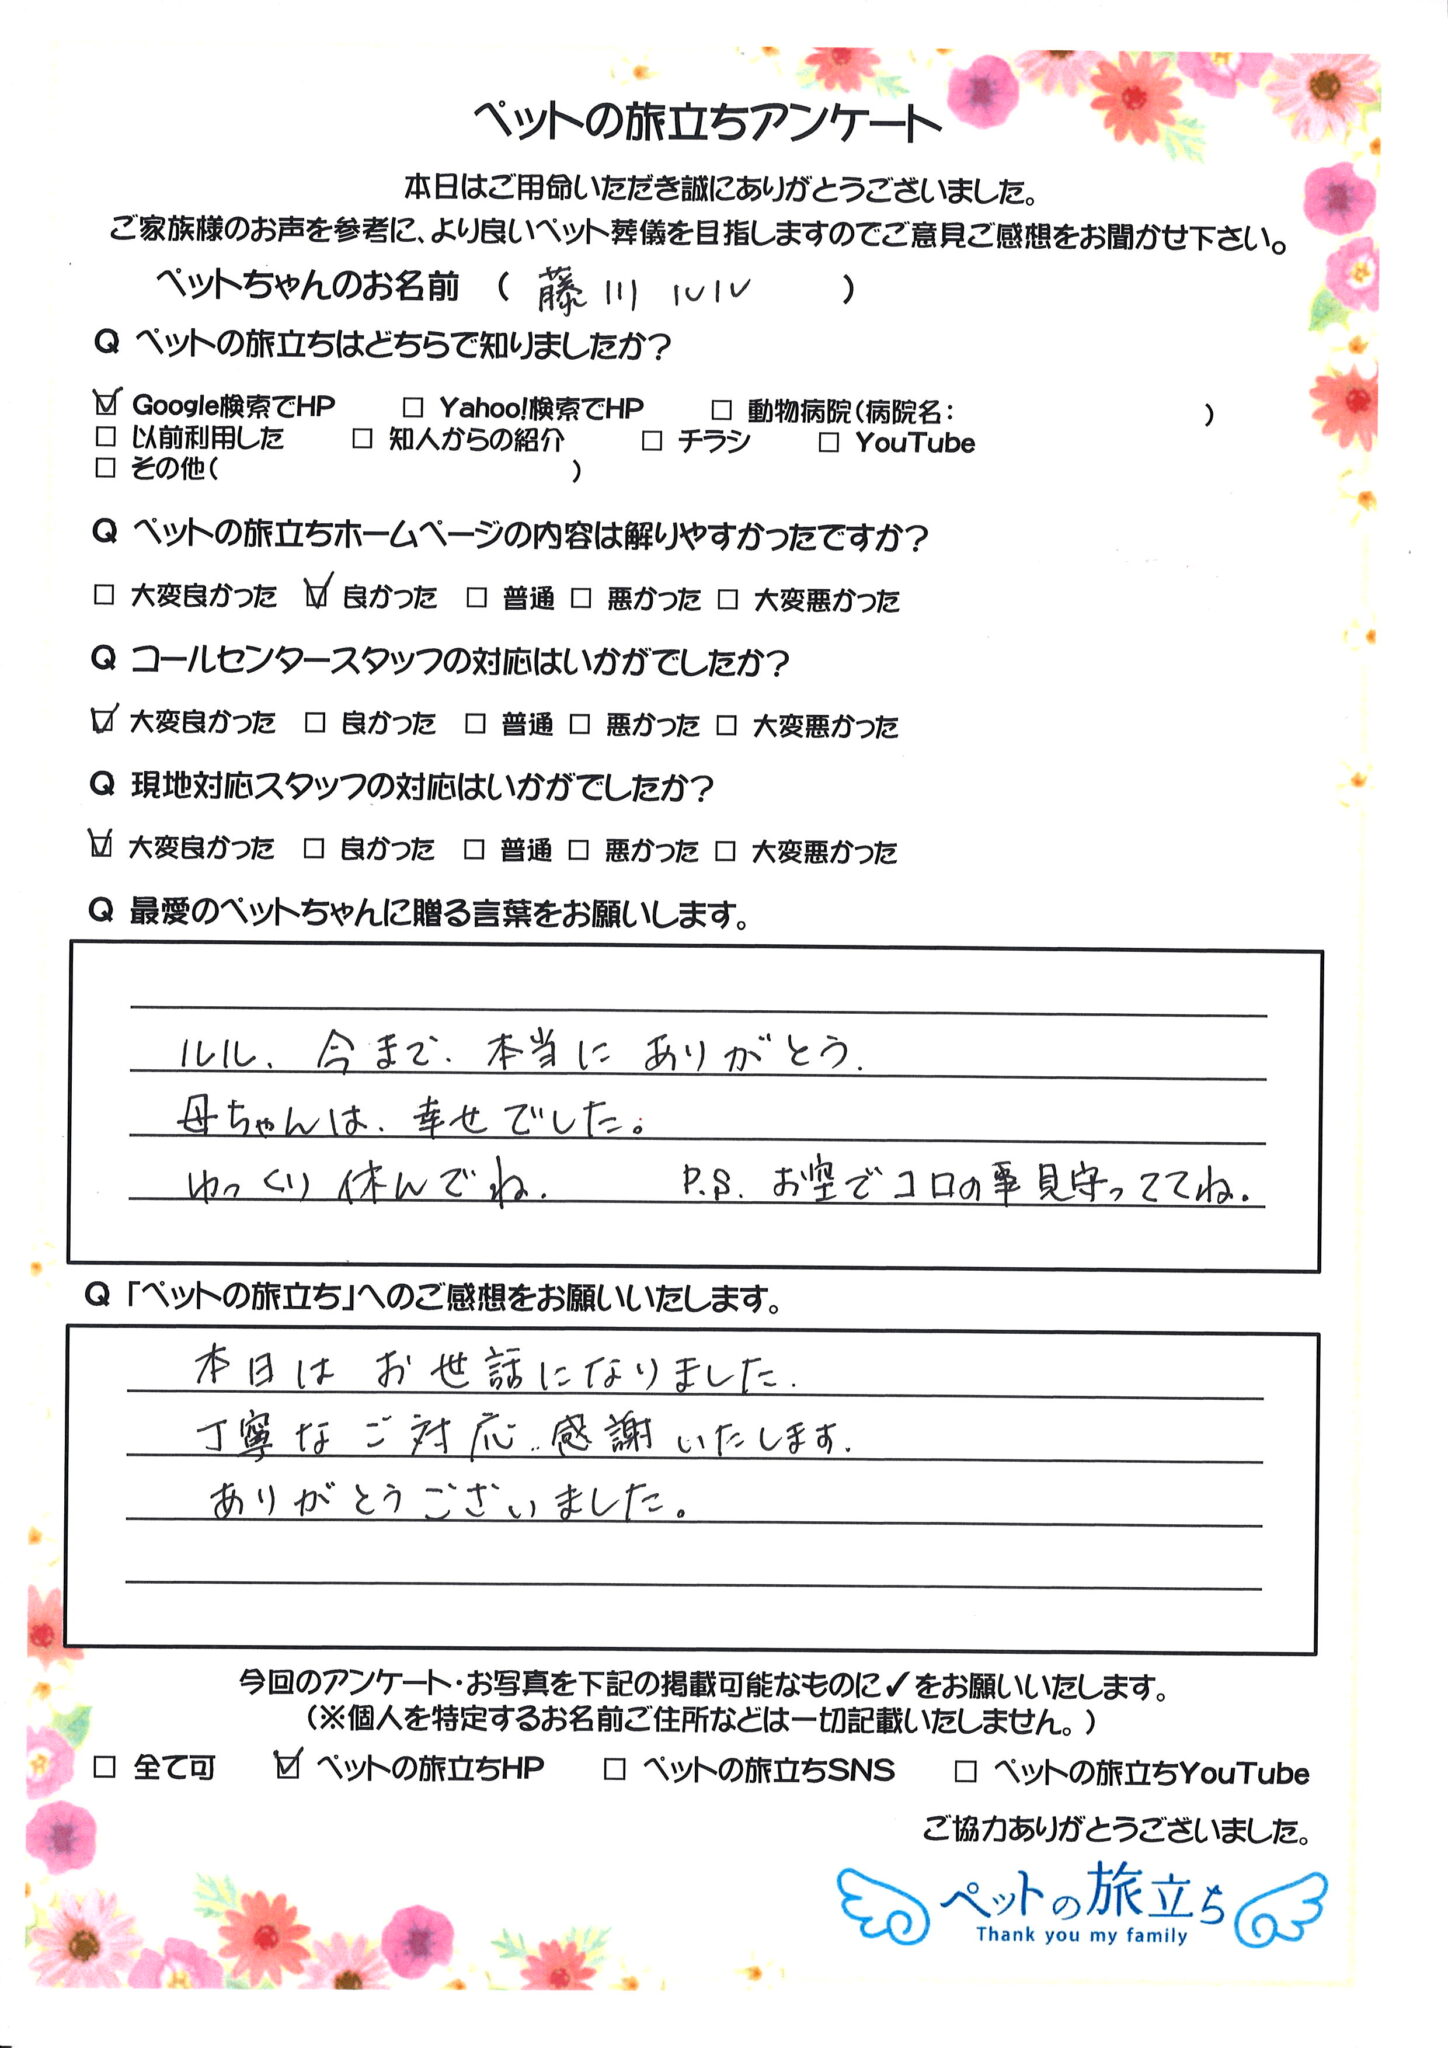 ペットの旅立ちアンケート
本日はご用命いただき誠にありがとうございました。
ご家族様のお声を参考に、より良いペット葬儀を目指しますのでご意見ご感想をお聞かせ下さい。
ペットちゃんのお名前 ( 藤川 ルル )
Q ペットの旅立ちはどちらで知りましたか?
☑ Google検索でHP □ Yahoo!検索でHP □ 動物病院(病院名: )
□ 以前利用した □ 知人からの紹介 □ チラシ □ YouTube
□ その他( )
Q ペットの旅立ちホームページの内容は解りやすかったですか?
□ 大変良かった ☑ 良かった □ 普通 □ 悪かった □ 大変悪かった
Q コールセンタースタッフの対応はいかがでしたか?
☑ 大変良かった □ 良かった □ 普通 □ 悪かった □ 大変悪かった
Q 現地対応スタッフの対応はいかがでしたか?
☑ 大変良かった □ 良かった □ 普通 □ 悪かった □ 大変悪かった
Q 最愛のペットちゃんに贈る言葉をお願いします。
ルル、今まで、本当に ありがとう.
母ちゃんは、幸せでした。
ゆっくり休んでね. P.S. お空でコロの事見守っててね.
Q 「ペットの旅立ち」へのご感想をお願いいたします。
本日は お世話になりました.
丁寧なご対応.. 感謝いたします.
ありがとうございました。
今回のアンケート・お写真を下記の掲載可能なものに✓をお願いいたします。
(※個人を特定するお名前ご住所などは一切記載いたしません。)
□ 全て可 ☑ ペットの旅立ちHP □ ペットの旅立ちSNS □ ペットの旅立ちYouTube
ご協力ありがとうございました。
ペットの旅立ち
Thank you my family